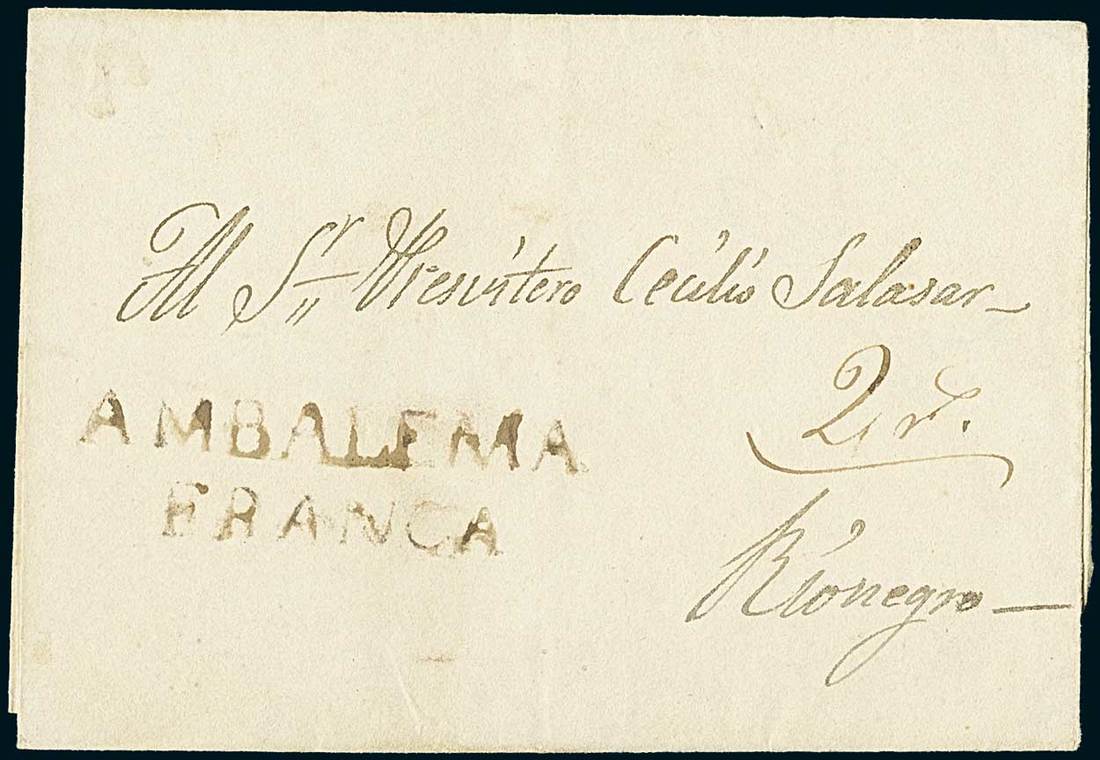 Al Sr. Presvitero Cecilio Salasar
AMBALEMA
FRANCA
2 r.
Rionegro